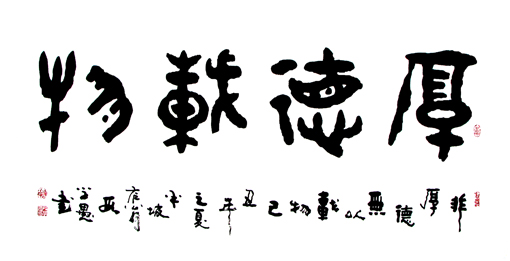 厚德載物
非厚德無以載物己丑年之夏愚書